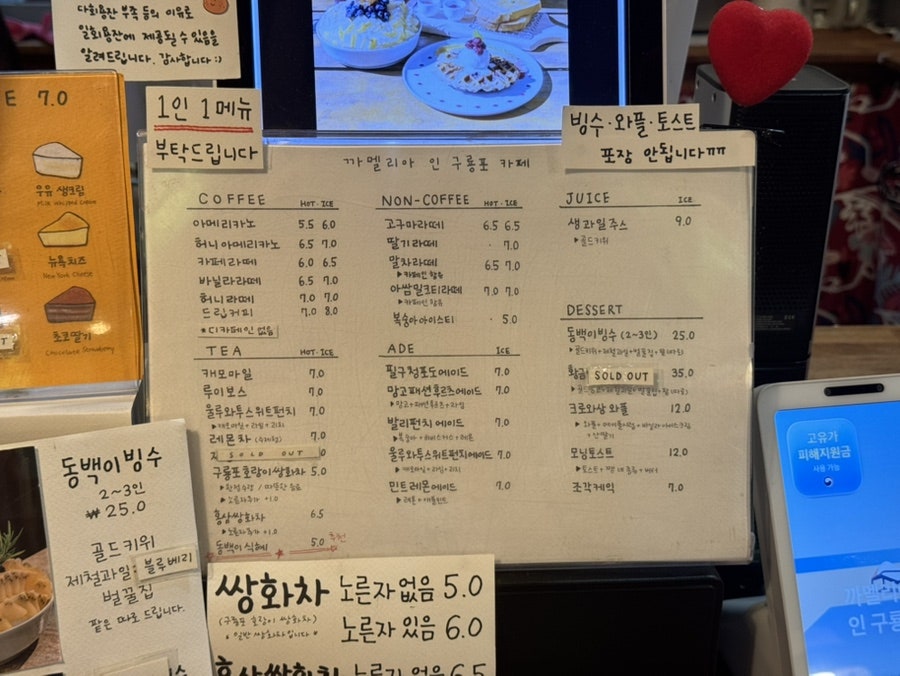 다회용잔 부족 등의 이유로
일회용잔에 제공될 수 있음을
알려드립니다. 감사합니다 :)
E 7.0
우유 생크림
Milk Whipped Cream
뉴욕치즈
New York Cheese
초코딸기
Chocolate Strawberry
1인 1메뉴
부탁드립니다
빙수·와플·토스트
포장 안됩니다ㅠㅠ
까멜리아 인 구룡포 카페
COFFEE HOT·ICE
아메리카노 5.5 6.0
허니아메리카노 6.5 7.0
카페라떼 6.0 6.5
바닐라라떼 6.5 7.0
허니라떼 7.0 7.0
드립커피 7.0 8.0
*디카페인 없음
TEA HOT·ICE
캐모마일 7.0
루이보스 7.0
울루와투스위트펀치 7.0
▶캐모마일+라임+리치
레몬차 (수제청) 7.0
SOLD OUT
구룡포호랑이쌍화차 5.0
▶노른자추가 +1.0
홍삼쌍화차 6.5
▶노른자추가 +1.0
동백이식혜 5.0 추천
NON-COFFEE HOT·ICE
고구마라떼 6.5 6.5
딸기라떼 · 7.0
말차라떼 6.5 7.0
▶카페인 함유
아쌈밀크티라떼 7.0 7.0
▶카페인 함유
복숭아아이스티 · 5.0
ADE ICE
필구청포도에이드 7.0
망고패션후르츠에이드 7.0
▶망고+패션후르츠+라임
발리펀치 에이드 7.0
▶복숭아+히비스커스+레몬
울루와투스위트펀치에이드 7.0
▶캐모마일+라임+리치
민트레몬에이드 7.0
▶레몬+애플민트
JUICE ICE
생과일주스 9.0
▶골드키위
DESSERT
동백이빙수 (2~3인) 25.0
▶골드키위+제철과일+벌꿀집+팥(따로)
황금 SOLD OUT 35.0
크로와상 와플 12.0
모닝토스트 12.0
조각케익 7.0
동백이빙수
2~3인
₩25.0
골드키위
제철과일: 블루베리
벌꿀집
팥은 따로 드립니다.
쌍화차 노른자 없음 5.0
(구룡포 호랑이 쌍화차)
*일반 쌍화차입니다*
노른자 있음 6.0
홍삼쌍화차 노른자 없음 6.5
고유가
피해지원금
사용 가능
까멜리
인 구룡